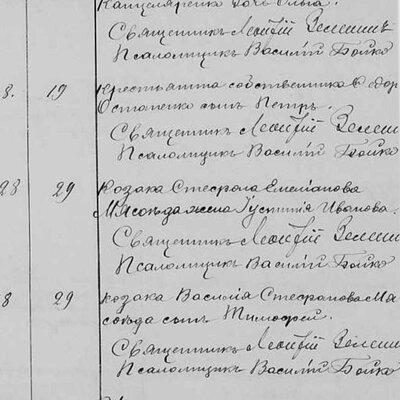 Канцеляренко дочь Ольга.
Священникъ Леонтій Зеленин
Псаломщикъ Василій Бойко
8. 19 Крестьянина собственника
Остапенко сынъ Петръ.
Священникъ Леонтій Зелен
Псаломщикъ Василій Бойко
28 29 Козака Стефана Емеліанова
Мясоѣда жена Іустинія Иванова.
Священникъ Леонтій Зелени
Псаломщикъ Василій Бойко
8 29 Козака Василія Стефанова Мя
соѣда сынъ Тимофей.
Священникъ Леонтій Зелен
Псаломщикъ Василій Бойко